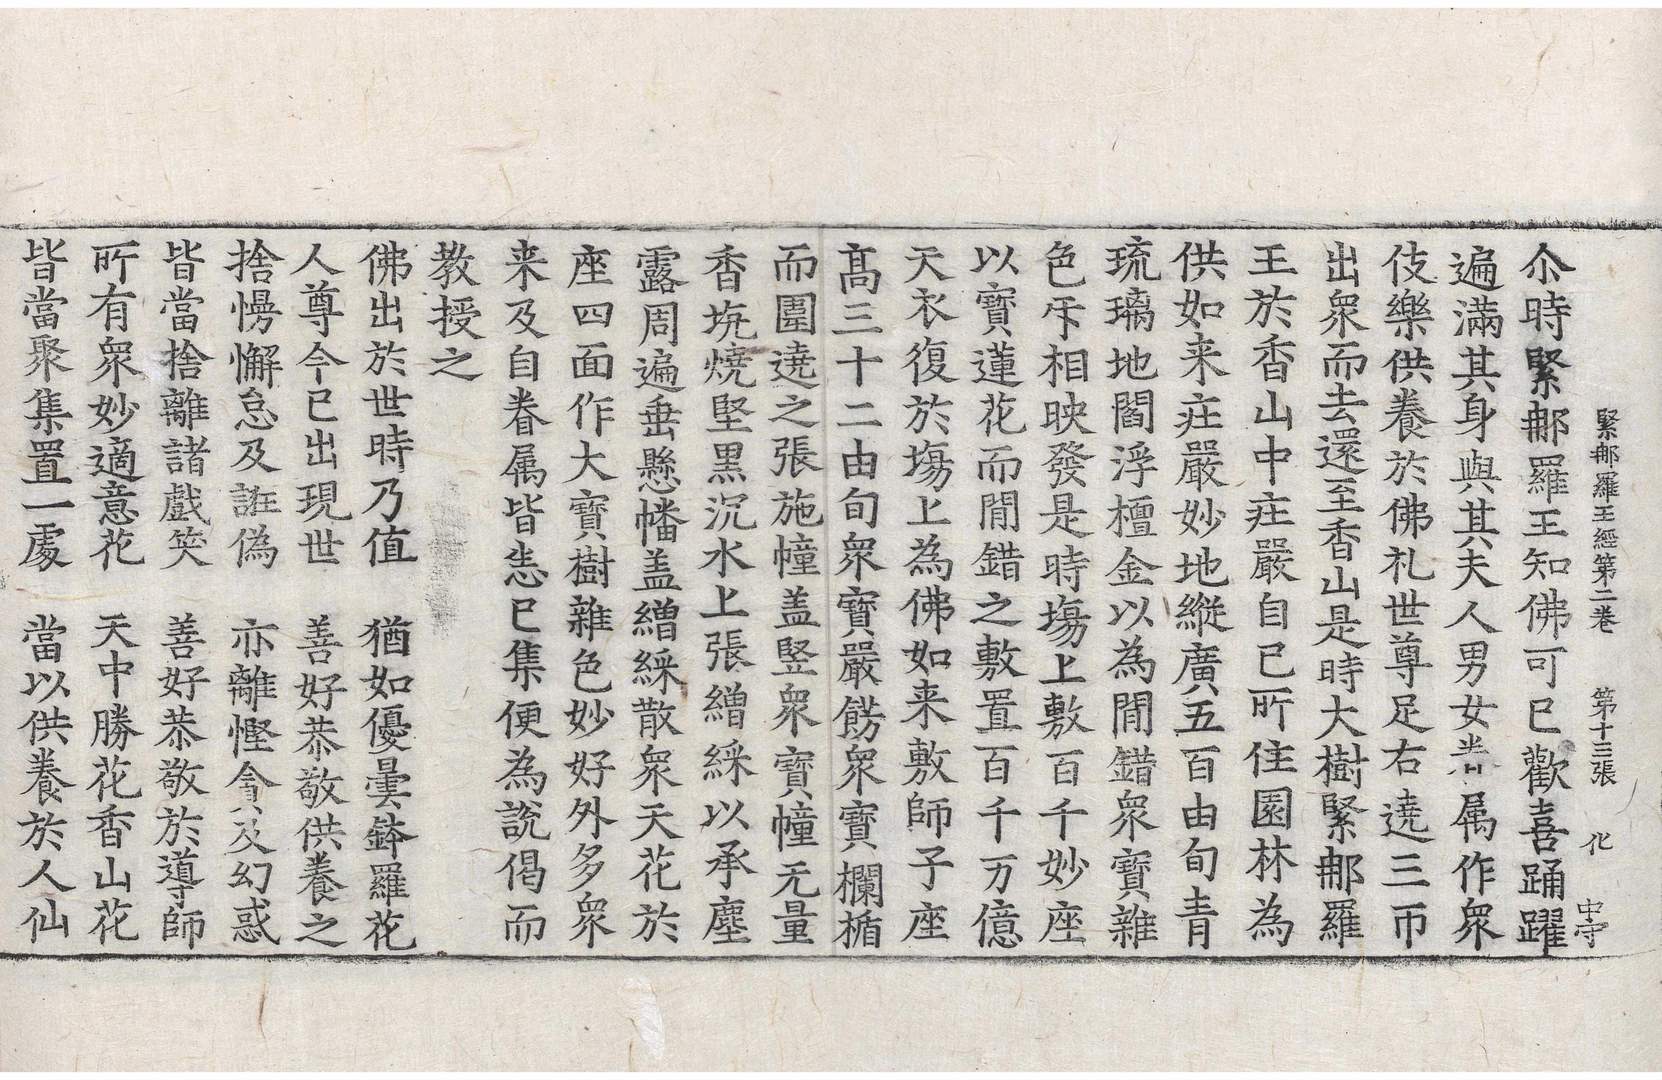 緊𨙻羅王經第二卷 第十三張 化 中守
尒時緊𨙻羅王知佛可已歡喜踊躍
遍滿其身與其夫人男女眷属作衆
伎樂供養於佛礼世尊足右遶三帀
出衆而去還至香山是時大樹緊𨙻羅
王於香山中庄嚴自已所住園林為
供如来庄嚴妙地縱廣五百由旬青
琉璃地閻浮檀金以為間錯衆寶雜
色㸦相映發是時塲上敷百千妙座
以寶蓮花而間錯之敷置百千万億
天衣復於塲上為佛如来敷師子座
髙三十二由旬衆寶嚴餝衆寶欄楯
而圍遶之張施幢盖竪衆寶幢无量
香垸燒堅黒沉水上張繒綵以承塵
露周遍垂懸幡盖繒綵散衆天花於
座四面作大寶樹雜色妙好外多衆
来及自眷属皆悉已集便為說偈而
教授之
佛出於世時乃值 猶如優曇鉢羅花
人尊今已出現世 善好恭敬供養之
捨慢懈怠及誑偽 亦離慳貪及幻惑
皆當捨離諸戲笑 善好恭敬於導師
所有衆妙適意花 天中勝花香山花
皆當聚集置一處 當以供養於人仙